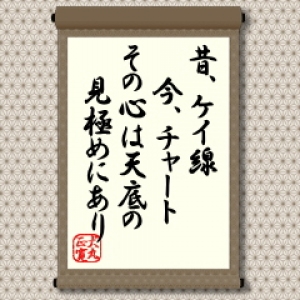 昔、ケイ線
今、チャート
その心は天底の
見極めにあり